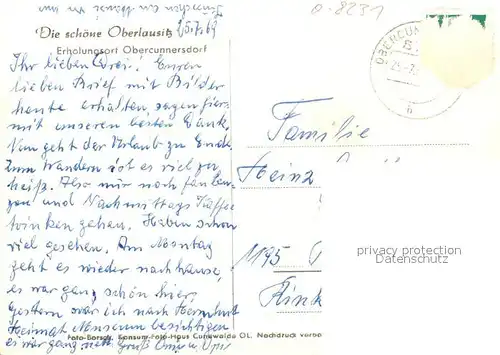 25.7.69
Die schöne Oberlausitz
Erholungsort Obercunnersdorf
Ihr lieben Drei! Euren
lieben Brief mit Bilder
heute erhalten, sagen hier
mit unseren besten Dank.
Nun geht der Urlaub zu Ende
Zum Wandern ist es viel zu
heiß. Also nur noch faulen-
zen und Nachmittags Kaffee
trinken gehen. Haben schon
viel gesehen. Am Montag
geht es wieder nach hause,
es war ganz schön hier.
Gestern war ich nach Herrnhut
Heimat Museum besichtigen
es war ganz nett. Gruß Omi u. Opa
Foto-Dorsch, Konsum-Foto-Haus Cunewalde OL. Nachdruck verbo
D-8231
OBERCUN
25.-7.
b
Familie
Heinz
1195
privacy protection
Datenschutz